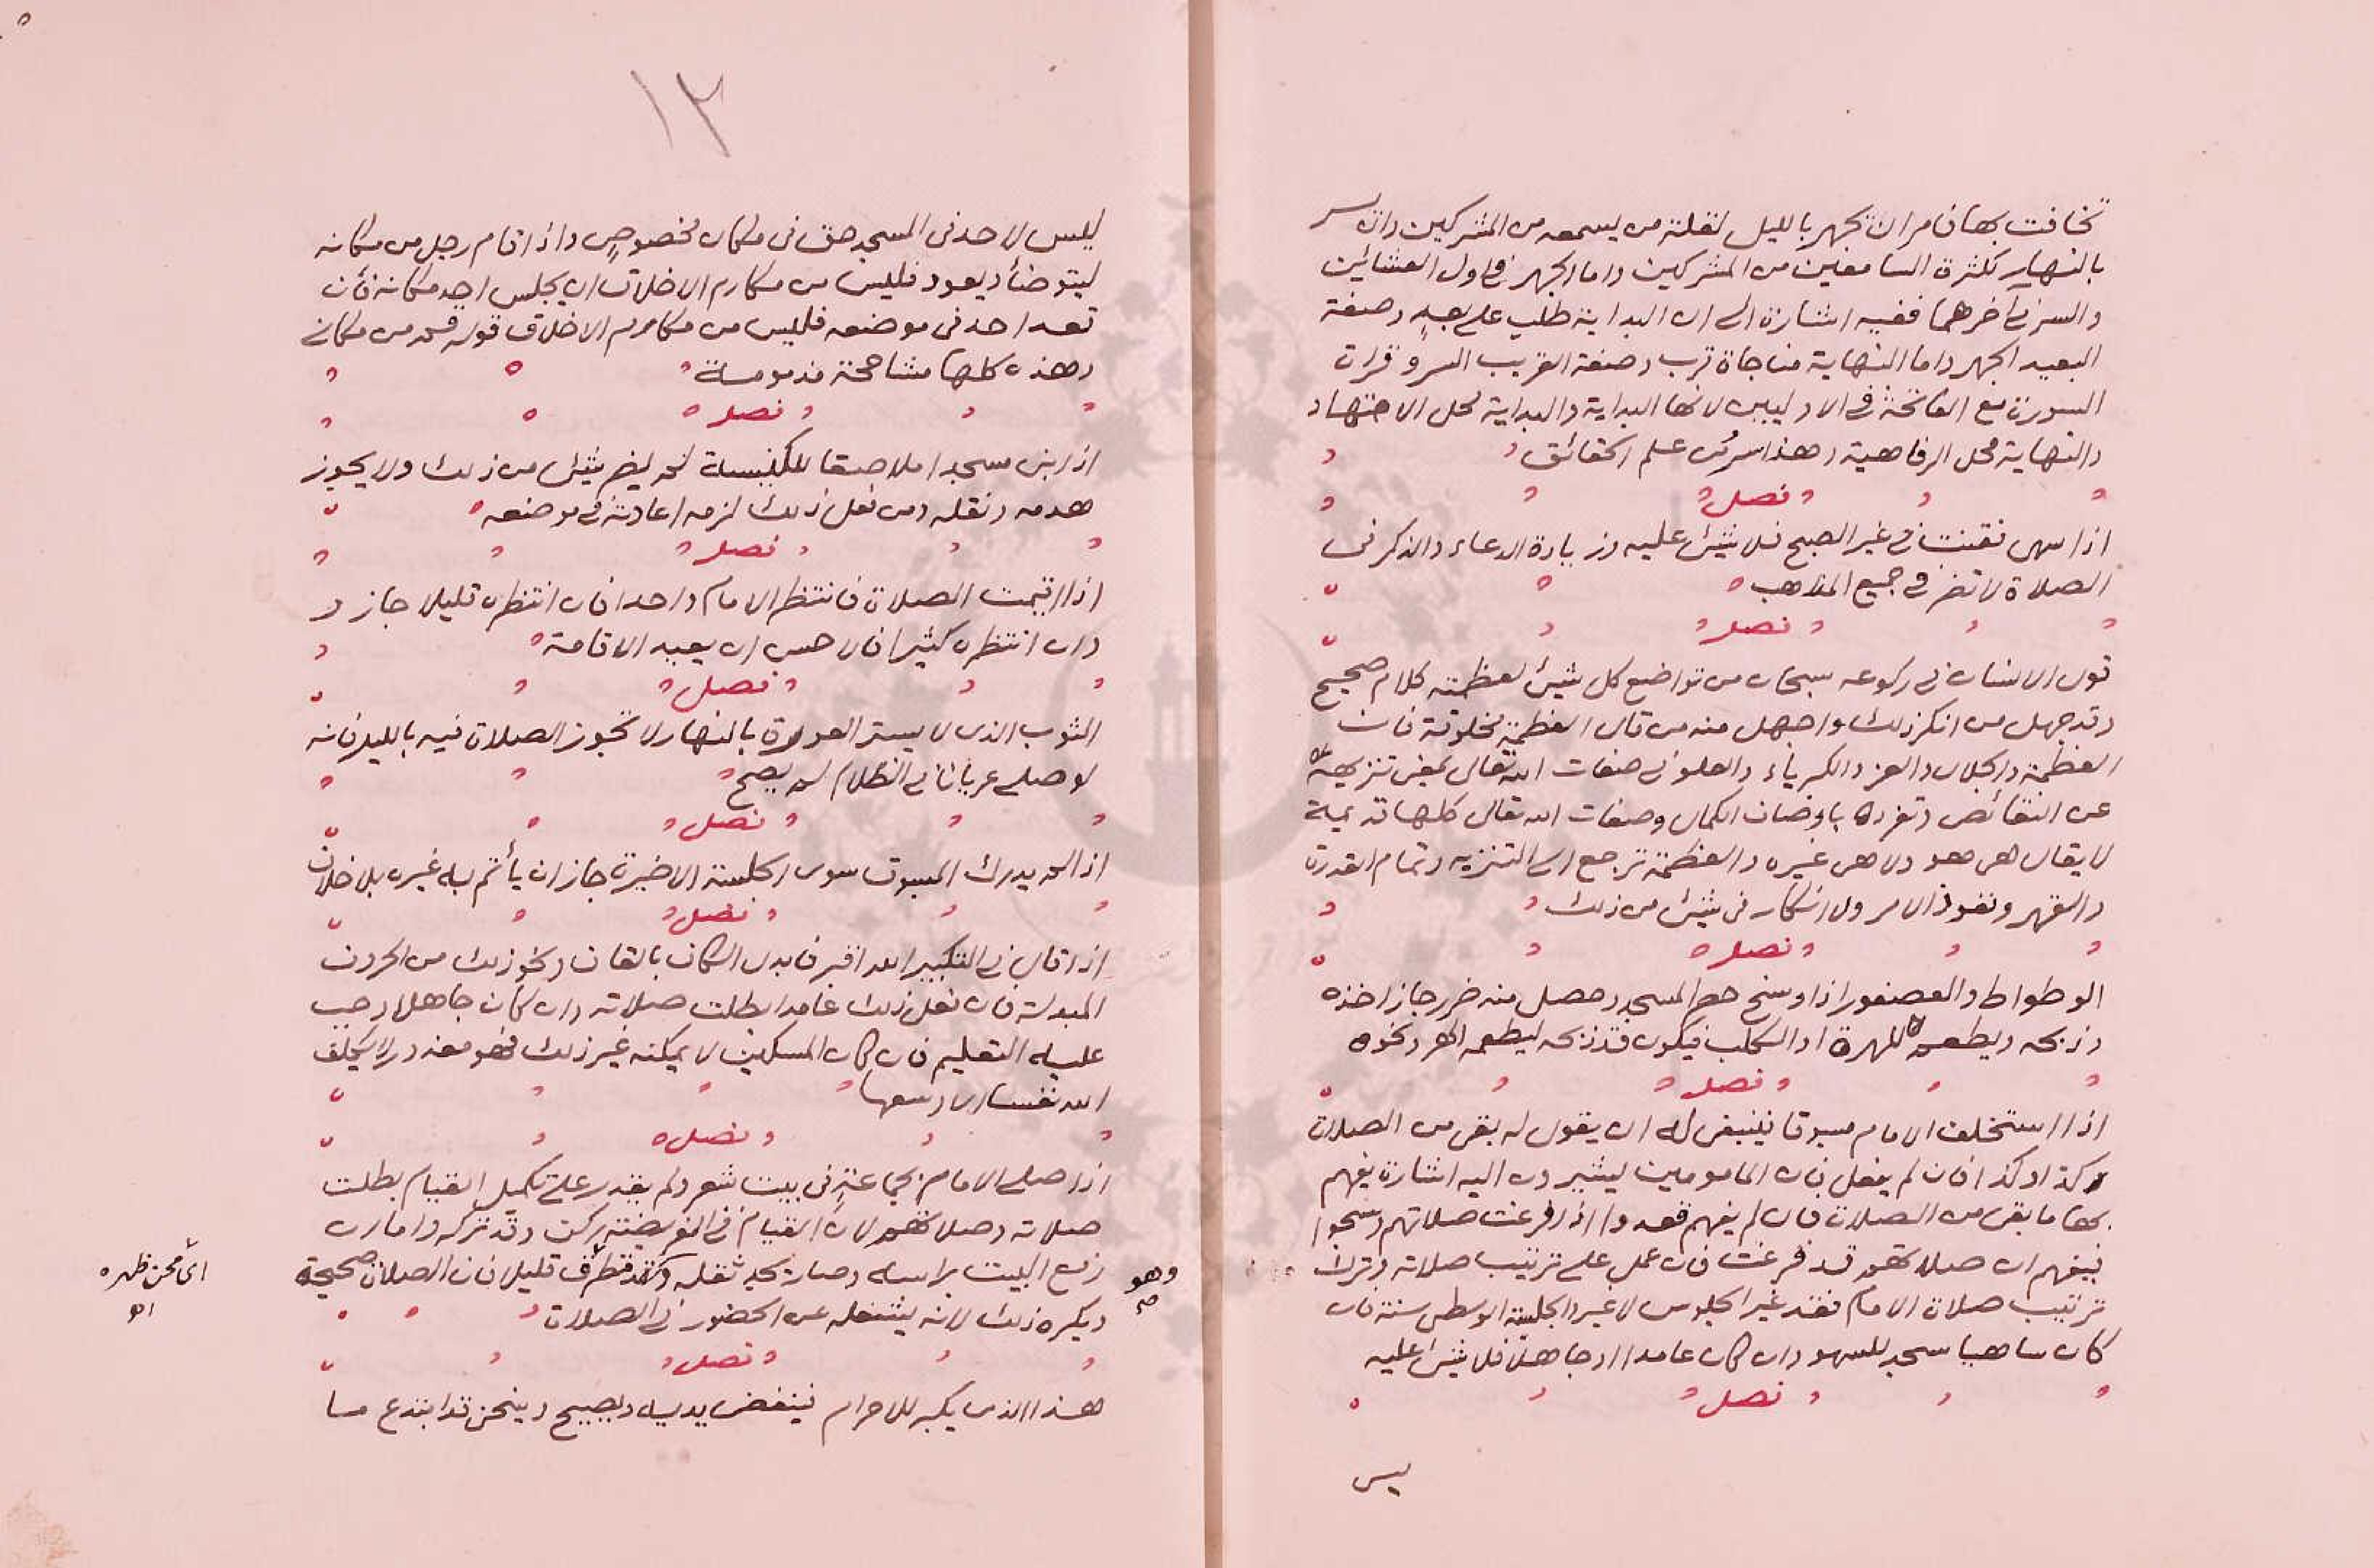 تخافت بها فامر ان تجهر بالليل لقلة من يسمعه من المشركين وان تسر
بالنهار لكثرة السامعين من المشركين واما الجهر في اول العشائين
والسر في اخرهما ففيه اشارة الى ان البداية طلب على بعد وصفة
البعيد الجهر واما النهاية مناجاة قرب وصفة القريب السر وقرات
السورة مع الفاتحة في الاوليين لانها البداية والبداية محل الاجتهاد
والنهاية محل الرفاهية وهذا سر من علم الحقائق
فصل
اذا سهى فقنت في غير الصبح فلا شيئ عليه وزيادة الدعاء والذكر في
الصلاة لا تضر في جميع المذاهب
فصل
قول الانسان في ركوعه سبحان من تواضع كل شيئ لعظمته كلام صحيح
وقد جهل من انكر ذلك واجهل منه من قال العظمة مخلوقة فان
العظمة والجلال والعز والكبرياء والعلو في صفات الله تعالى بمعنى تنزيهه
عن النقائص وتفرده باوصاف الكمال وصفات الله تعالى كلها قديمة
لا يقال هي هو ولا هي غيره والعظمة ترجع الى التنزيه وتمام القدرة
والقهر ونفوذ الامر ولا انكار في شيئ من ذلك
فصل
الوطواط والعصفور اذا وسخ حصر المسجد وحصل منه ضرر جاز اخذه
وذبحه ويطعمه للهرة او الكلب فيكون قد ذبحه ليطعمه الهر ونحوه
فصل
اذا استخلف الامام مسبوقا فينبغي له ان يقول له بقي من الصلاة
كذا وكذا فان لم يفعل فان المامومين يشيرون اليه اشارة يفهم
بها ما بقي من الصلاة فان لم يفهم قعدوا اذا فرغت صلاتهم وسبحوا
فيفهم ان صلاتهم قد فرغت فان عمل على ترتيب صلاته وترك
ترتيب صلاة الامام فقد غير الجلوس لا غير والجلسة الوسطى سنة فان
كان ساهيا سجد للسهو وان كان عامدا او جاهلا فلا شيئ عليه
فصل
ليس
١٢
ليس لاحد في المسجد حق في مكان مخصوص واذا قام رجل من مكانه
ليتوضأ ويعود فليس من مكارم الاخلاق ان يجلس احد مكانه فان
قعد احد في موضعه فليس من مكارم الاخلاق قوله قم من مكاني
وهذه كلها مشاححة مذمومة
فصل
اذا بنى مسجدا ملاصقا للكنيسة لم يضر شيئ من ذلك ولا يجوز
هدمه ونقله ومن فعل ذلك لزمه اعادته في موضعه
فصل
اذا اقيمت الصلاة فانتظر الامام واحدا فان انتظره قليلا جاز و
وان انتظره كثيرا فالاحسن ان يعيد الاقامة
فصل
الثوب الذي لا يستر العورة بالنهار لا تجوز الصلاة فيه بالليل فانه
لو صلى عريانا في الظلام لم يصح
فصل
اذا لم يدرك المسبوق سوى الجلسة الاخيرة جاز ان يأتم به غيره بلا خلاف
فصل
اذا قال في التكبير الله اقبر فابدل الكاف بالقاف ونحو ذلك من الحروف
المبدلة فان فعل ذلك عامدا بطلت صلاته وان كان جاهلا وجب
عليه التعليم فان كان المسكين لا يمكنه غير ذلك فهو معذور لا يكلف
الله نفسا الا وسعها
فصل
اذا صلى الامام بجماعة في بيت شعر ولم يقدر على تكميل القيام بطلت
صلاته وصلاتهم لان القيام في الفريضة ركن وقد تركه واما ان
رفع البيت براسه وصار يجد ثقله وكتد فتطرق قليلا فان الصلاة صحيحة
وهو
صح
اى محن ظهره
اهو
ويكره ذلك لانه يشغله عن الحضور في الصلاة
فصل
هذا الذى يكبر للاحرام فينفض يديه ويصيح وينحن قد ابتدع ما